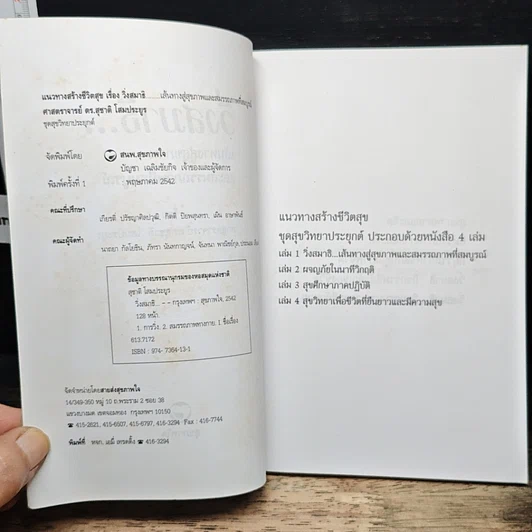 แนวทางสร้างชีวิตสุข เรื่อง วิ่งสมาธิ ...เส้นทางสู่สุขภาพและสมรรถภาพที่สมบูรณ์
ศาสตราจารย์ ดร.สุชาติ โสมประยูร
ชุดสุขวิทยาประยุกต์
จัดพิมพ์โดย : สนพ.สุขภาพใจ
บัญชา เฉลิมชัยกิจ เจ้าของและผู้จัดการ
พิมพ์ครั้งที่ 1 : พฤษภาคม 2542
คณะที่ปรึกษา
เกียรติ ปรัชญาศิลปวุฒิ, กิตติ ปิยพสุนทรา, เฉิน อาษาพันธ์
คณะผู้จัดทำ
นาถยา กัลโยธิน, ภัทรา นันทกาญจน์, จันทนา
ข้อมูลทางบรรณานุกรมของหอสมุดแห่งชาติ
สุชาติ โสมประยูร
วิ่งสมาธิ.-- กรุงเทพฯ : สุขภาพใจ, 2542
128 หน้า
1. การวิ่ง. 2. สมรรถภาพทางกาย. I. ชื่อเรื่อง
613.7172
ISBN : 974-7364-13-1
จัดจำหน่ายโดยสายส่งสุขภาพใจ
14/349-350 หมู่ 10 ถ.พระราม 2 ซอย 38
แขวงบางมด เขตจอมทอง กรุงเทพฯ 10150
☎ 415-2621, 415-6507, 415-6797, 416-3294 Fax : 416-7744
พิมพ์ที่ หจก. เอมี่ เทรดดิ้ง ☎ 416-3294
แนวทางสร้างชีวิตสุข
ชุดสุขวิทยาประยุกต์ ประกอบด้วยหนังสือ 4 เล่ม
เล่ม 1 วิ่งสมาธิ...เส้นทางสู่สุขภาพและสมรรถภาพที่สมบูรณ์
เล่ม 2 ผจญภัยในนาทีวิกฤติ
เล่ม 3 สุขศึกษาภาคปฏิบัติ
เล่ม 4 สุขวิทยาเพื่อชีวิตที่ยืนยาวและมีความสุข